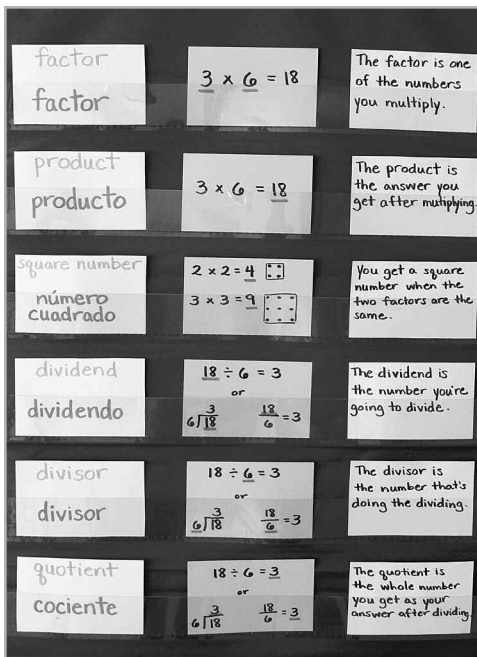 factor
factor
3 × 6 = 18
The factor is one
of the numbers
you multiply.
product
producto
3 × 6 = 18
The product is
the answer you
get after mutiplying.
square number
número
cuadrado
2 × 2 = 4
3 × 3 = 9
You get a square
number when the
two factors are the
same.
dividend
dividendo
18 ÷ 6 = 3
or
3
6)18
18/6 = 3
The dividend is
the number you're
going to divide.
divisor
divisor
18 ÷ 6 = 3
or
3
6)18
18/6 = 3
The divisor is
the number that's
doing the dividing.
quotient
cociente
18 ÷ 6 = 3
or
3
6)18
18/6 = 3
The quotient is
the whole number
you get as your
answer after dividing.